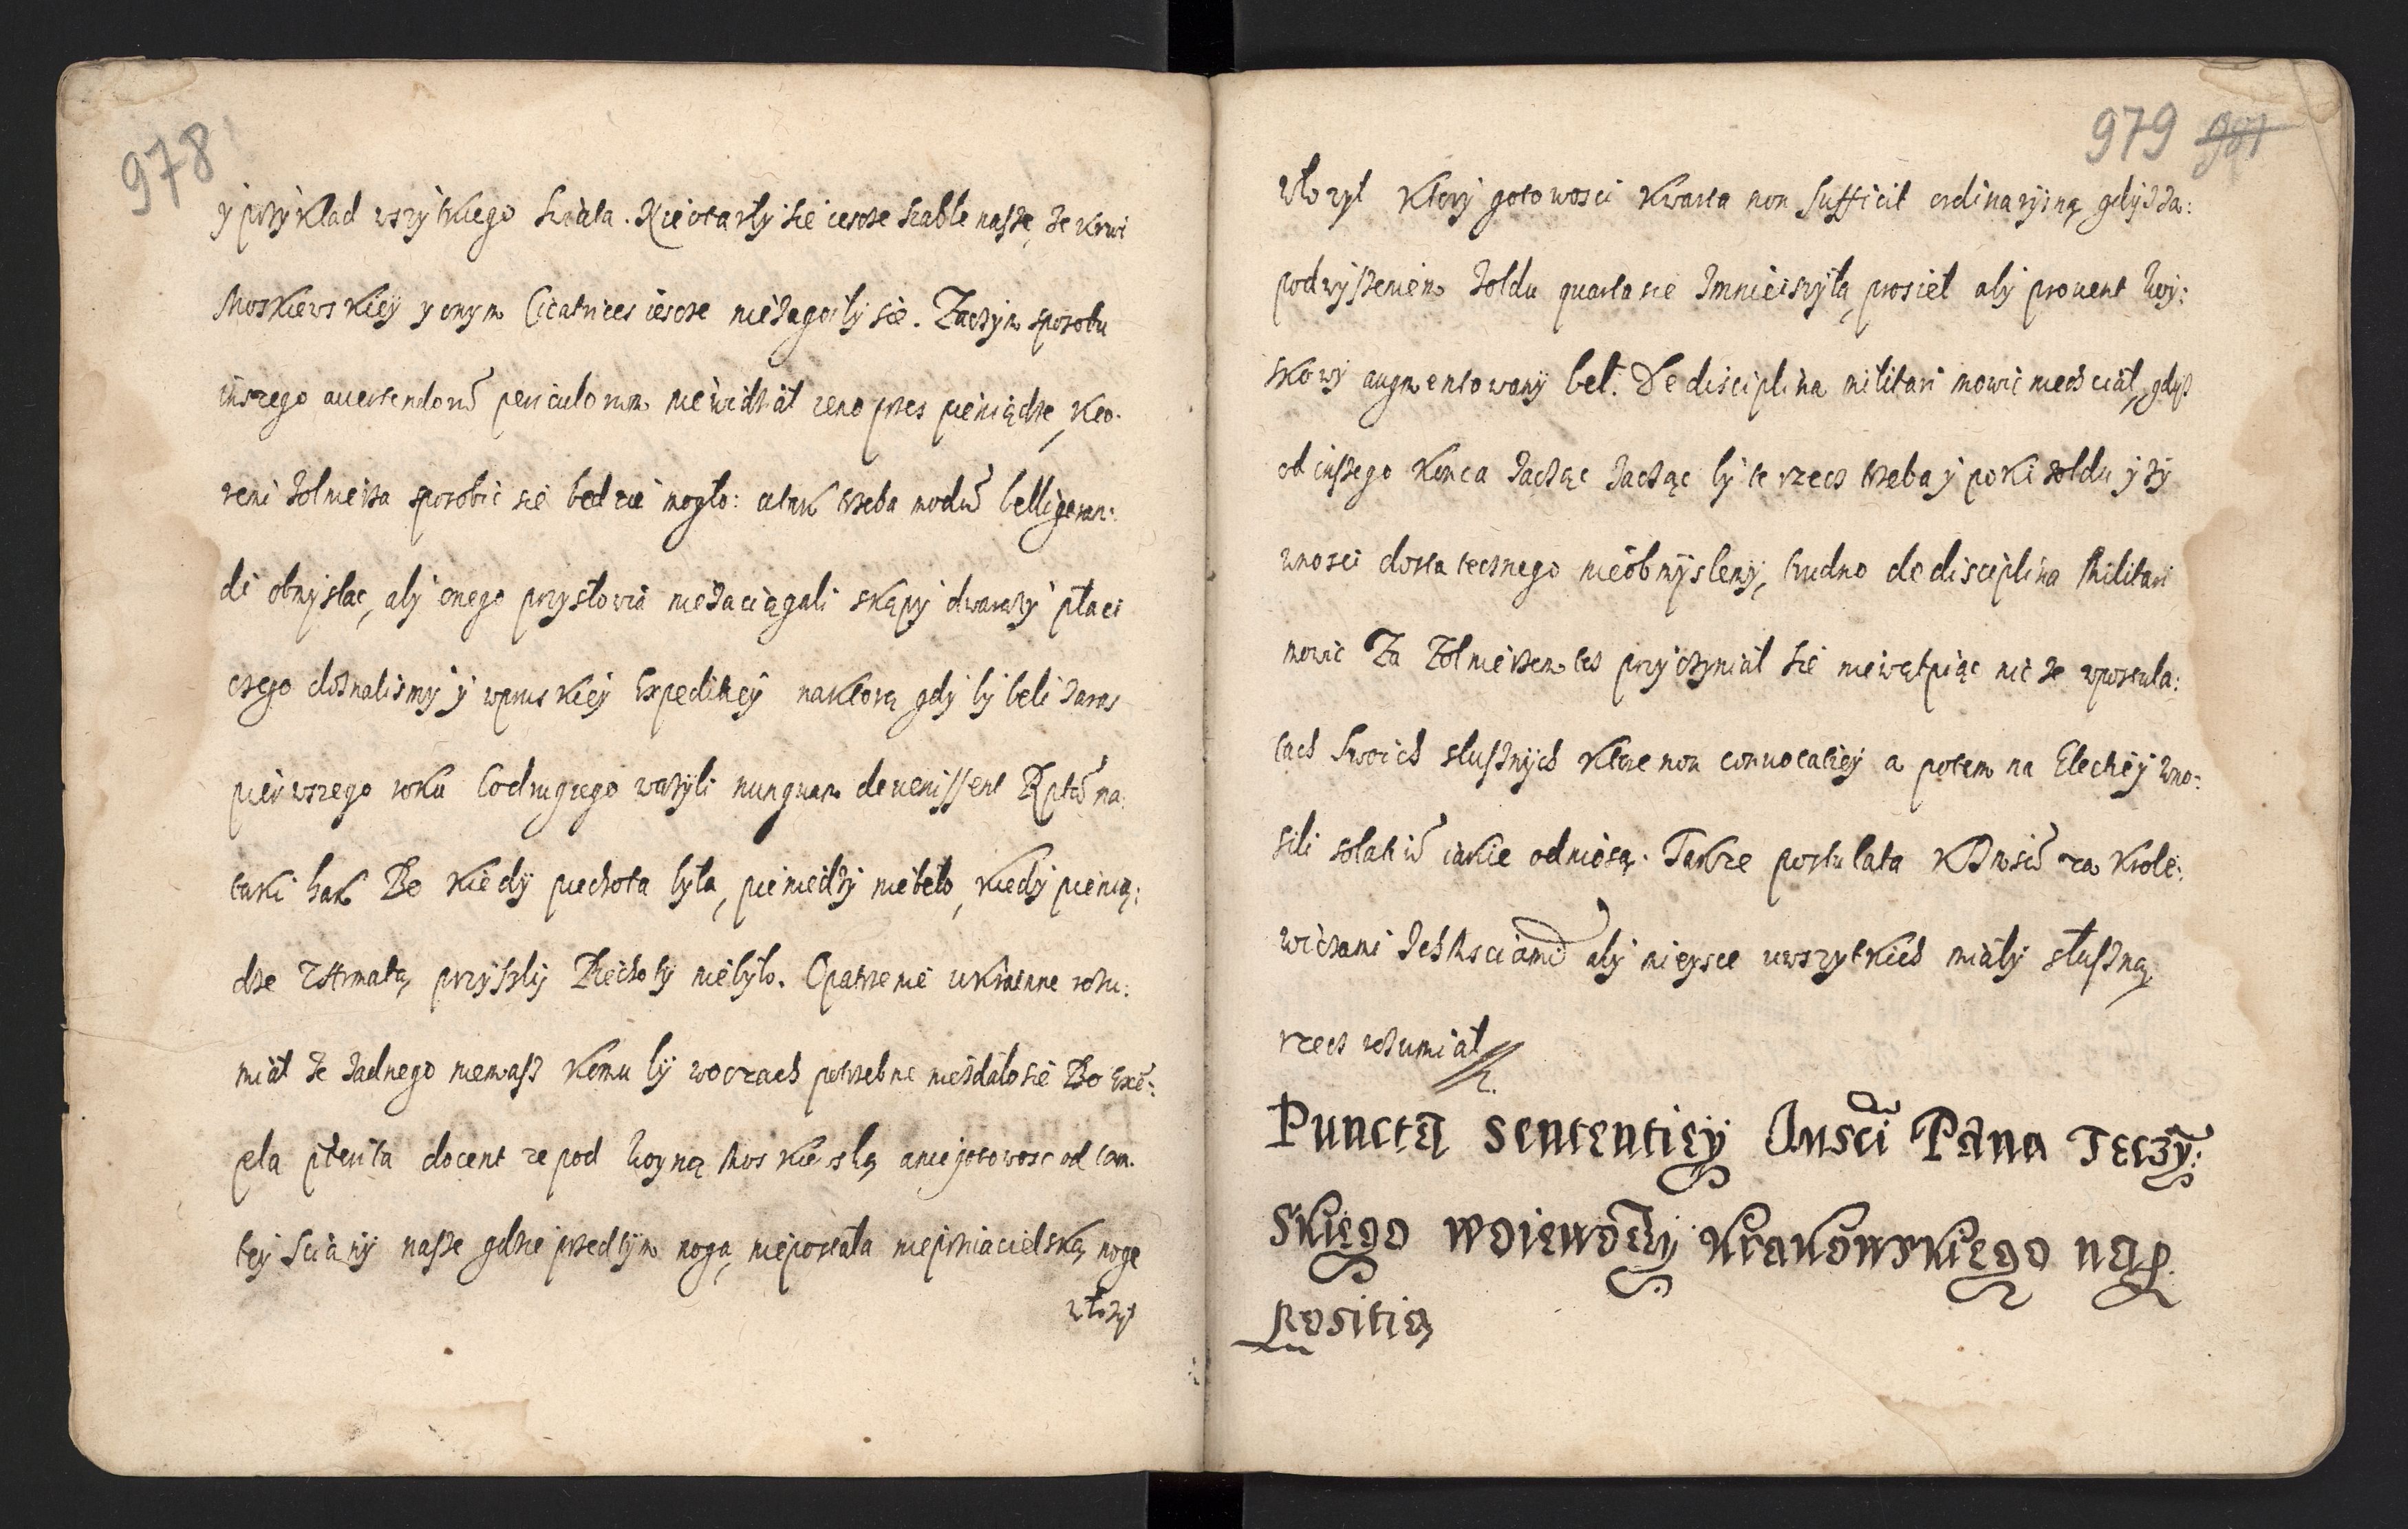 978
y przyklad wszytkiego swiata. Nieotarly sie iescze szable nasze, ze krwi
Moskiewskiey y onym Cicatrices iescze niezagoily sie. Zaczym sposobu
inszego auertendorũ periculorum niewidzial ieno przes pieniądze, kto-
remi zolnierza sposobic sie będzie moglo: atak trzeba modũ belligeran:
di obmyslac, aby onego przyslowia niezaciągali skąpy dwarazy placi
czego doznalismy y wpruskiey Expeditiey naktorą gdy by beli zaras
pierwszego roku Codrugiego wazyli nunquam deuenissent Rptã na
taki hak Bo kiedy piechota byla, pieniedzy niebelo, kiedy pienią:
dze przyszly Piechoty niebylo. Opatrzenie ukrainne rozu:
mial ze zadnego niemasz komu by woczach potrzebne niezdalosie Bo Exẽ:
pla pterita docent ze pod Woyną Moskiewską anie gotowosc od tam
tey sciany nasze gdzie przedtym noga, niepostala nieprziacielska, noge
wlozyl
979 981
wlozyl Ktorij gotowosci Kwarta non sufficit ordinaryiną gdyz za:
podwyszeniem zoldu quarta sie zmnieiszyla, prosiel aby prouent Woy:
skowy augmentowany bel. De disciplina militari mowic niechcial, gdysz
od inszego konca zacząc zacząc by te rzecz trzeba y poki zoldu y zy
wnosci dostatecznego nieobmyslemy, trudno de disciplina Militari
mowic Za Zolnierzem tes przyczynial sie niewątpiąc nic ze wpostula:
tach swoich slusznych ktore non conuocatiey a potem na Electiey wno:
sili solatiũ iakie odniosą. Takze postulata aby mieysce uwszytkich mialy sluszną
rzecz rozumial
Puncta sententiey Jmsci Pana Tęczy:
skiego woiewody Krakowskiego nap
positią